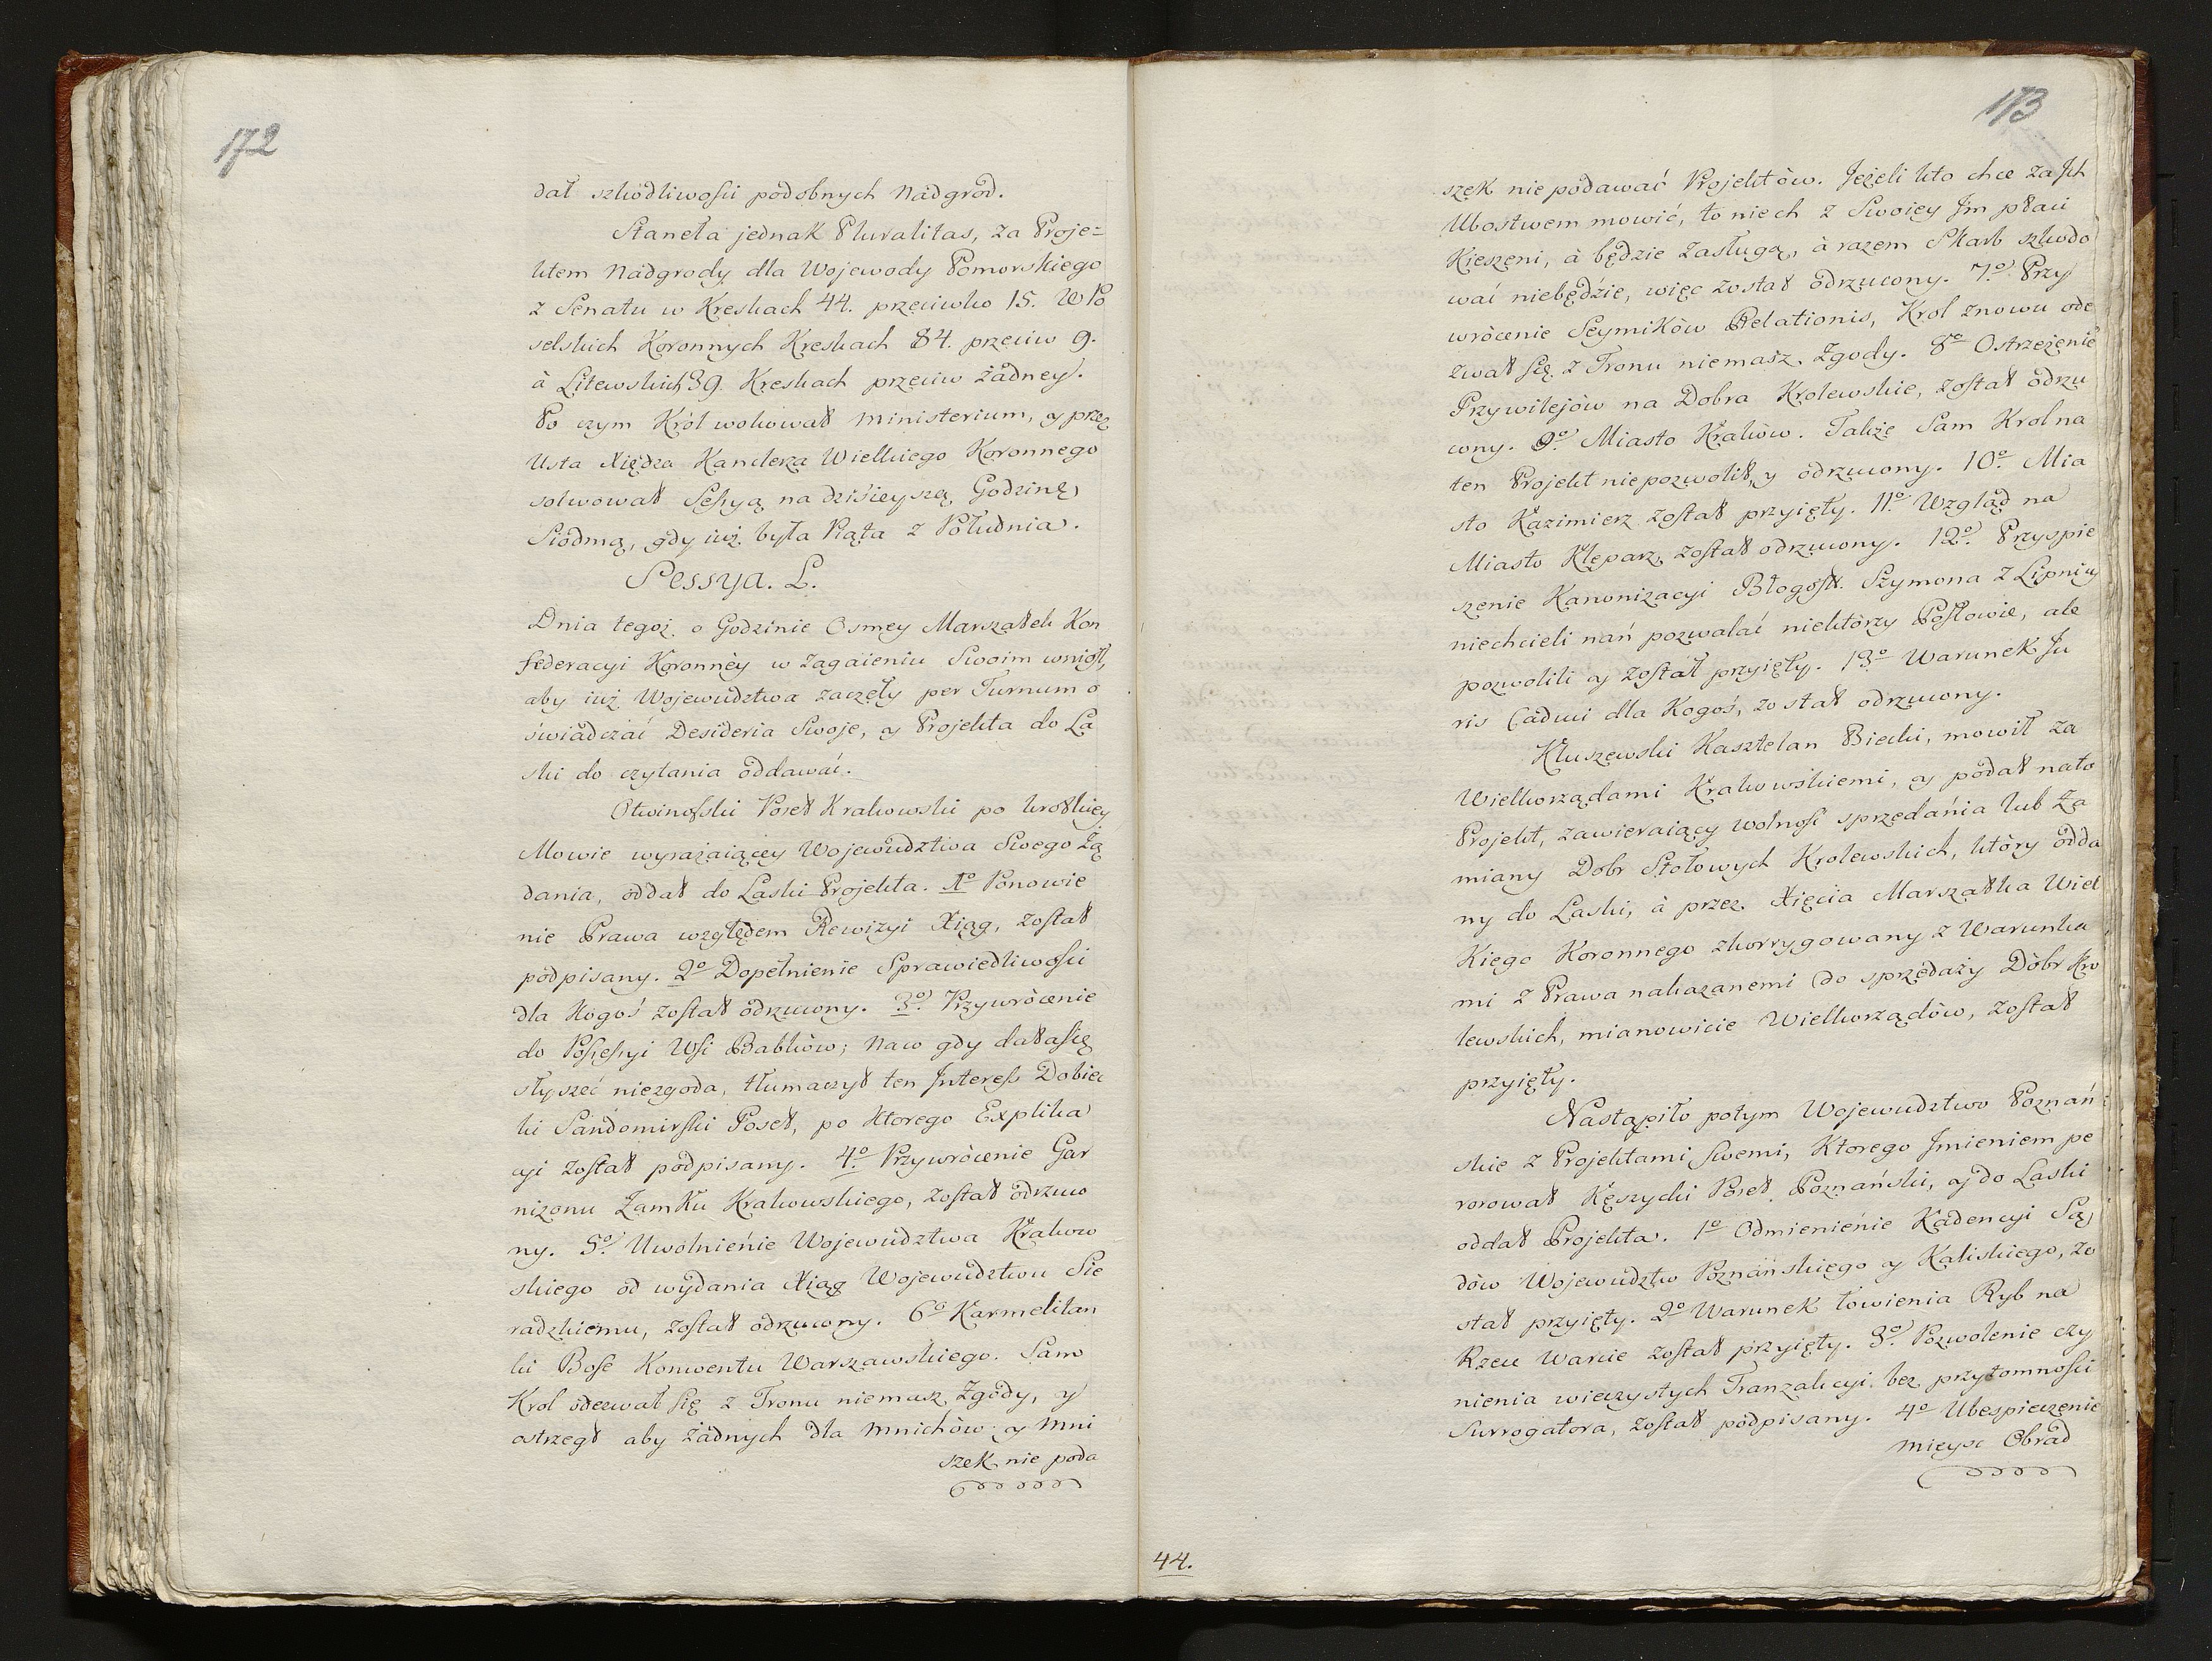 172
dał szkodliwości podobnych Nadgrod.
Staneła jednak Pluralitas, za Proje=
ktem Nadgrody dla Wojewody Pomorskiego
z Senatu w Kreskach 44. przeciwko 15. W Po
selskich Koronnych Kreskach 84. przeciw 9.
à Litewskich 39. Kreskach przeciw żadney.
Po czym Król wokował Ministerium, y przez
Usta Xiędza Kanclerza Wielkiego Koronnego
solwował Sessyą na dzisieyszą Godzinę
Siódmą, gdy iuż była Piąta z Południa.
Sessya. L.
Dnia tegoż o Godzinie Osmey Marszałek Kon
federacyi Koronney w Zagaieniu Swoim wniosł,
aby iuż Wojewudztwa zaczęły per Turnum o
świadczać Desideria Swoje, y Projekta do La
ski do czytania oddawać.
Otwinoski Poseł Krakowski po krotkiey
Mowie wyrażaiącey Wojewudztwa Swego Żą
dania, oddał do Laski Projekta. 1º Ponowie
nie Prawa względem Rewizyi Xiąg, został
podpisany. 2º Dopełnienie Sprawiedliwości
dla Kogoś został odrzucony. 3º Przywròcenie
do Possessyi Wsi Babków; Naco gdy dała się
słyszeć niezgoda, tłumaczył ten Interess Dobiec
ki Sandomirski Poseł, po ktorego Explika
cyi został podpisany. 4º Przywròcenie Gar
nizonu Zamku Krakowskiego, został odrzuco
ny. 5º Uwolnienie Wojewudztwa Krakow
skiego od wydania Xiąg Wojewudztwu Sie
radzkiemu, został odrzucony. 6º Karmelitan
ki Bose Konwentu Warszawskiego. Sam
Krol odezwał się z Tronu niemasz Zgody, y
ostrzegł aby żadnych dla Mnichów y Mni
szek nie poda
173
szek nie podawać Projektòw. Jeżeli kto chce za Ich
Ubostwem mowić, to niech z Swoiey Im płaci
Kieszeni, à będzie Zasługą, à razem Skarb szkodo
wać niebędzie, więc został odrzucony. 7º Przy
wròcenie Seymików Relationis, Krol znowu ode
zwał się z Tronu niemasz Zgody. 8º Ostrzeżenie
Przywilejòw na Dobra Krolewskie, został odrzu
cony. 9º Miasto Kraków. Także Sam Krol na
ten Projekt niepozwolił, y odrzucony. 10º Mia
sto Kazimierz został przyięty. 11º Wzgląd na
Miasto Kleparz, został odrzucony. 12º Przyspie
szenie Kanonizacyi Błogosł. Szymona z Lipnicy
niechcieli nań pozwalać niektòrzy Posłowie, ale
pozwolili y został przyięty. 13º Warunek Ju
ris Caduci dla Kogoś, został odrzucony.
Kluszewski Kasztelan Biecki, mowił za
Wielkorządami Krakowskiemi, y podał na to
Projekt, zawieraiący wolność sprzedania lub Za
miany Dobr Stołowych Krolewskich, ktòry odda
ny do Laski, à przez Xięcia Marszałka Wiel
Kiego Koronnego skorrygowany z Warunka
mi z Prawa nakazanemi do sprzedaży Dòbr Kro
lewskich, mianowicie Wielkorządòw, został
przyięty.
Nastąpiło potym Wojewudztwo Poznań
skie z Projektami Swemi, Ktorego Imieniem pe
rorował Kęszycki Poseł Poznański, y do Laski
oddał Projekta. 1º Odmienienie Kadencyi Są
dów Wojewudztw Poznańskiego y Kaliskiego, zo
stał przyięty. 2º Warunek łowienia Ryb na
Rzece Warcie został przyięty. 3º Pozwolenie czy
nienia wieczystych Tranzakcyi bez przytomności
Surrogatora, został podpisany. 4º Ubespieczenie
Mieysc Obrad
44.